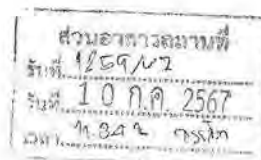 ส่วนอาคารสถานที่
รับที่ 1259/67
วันที่ 10 ก.ค. 2567
เวลา